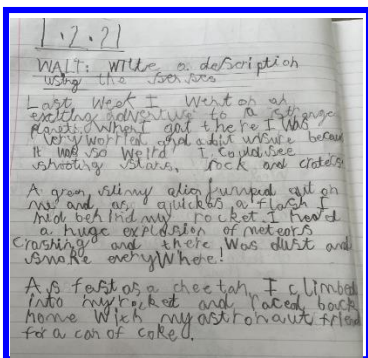 1.2.21
WALT: write a description
using the senses
Last week I went on an
exciting adventure to a strange
planet. When I got there I was
very worried and a bit unsure becaus
it was so weird. I could see
shooting stars, rock and craters.
A green, slimy alien jumped out on
me and as quick as a flash I
hid behind my rocket. I heard
a huge explosion of meteors
crashing and there was dust and
smoke everywhere!
As fast as a cheetah, I climbed
into my rocket and raced back
home with my astronaut friend
for a can of coke.